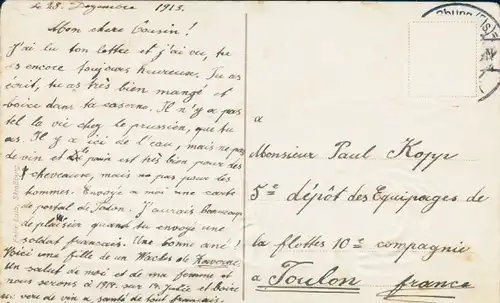 le 28. Dezembre 1913.
Mon chere Cousin!
J'ai lu ton lettre et j'ai vu, tu
es encore toujours heureuse. Tu as
écrit, tu as très bien mangé et
boire dans ta caserne. Il n'y a pas
tel la vie chez le prussien, que tu
as. Il y a ici de l'eau, mais ne pas
de vin et le pain est très bien pour des
cheveaure, mais ne pas pour des
hommes. Envoyé a moi une carte
de postal de Toulon. J'aurais beaucoup
de plaisir quand tu envoyé une
soldat francais. Une bonne ané!
Voici une fille de un Wackes de
Un salut de moi et de ma femme et
nous serons à 1914. sur 14. Julie et boire
un vere de vin a santé de tout francais.
a
Monsieur Paul Kopp
5e dépôt des Equipages de
la flottes 10e compagnie
a Toulon france